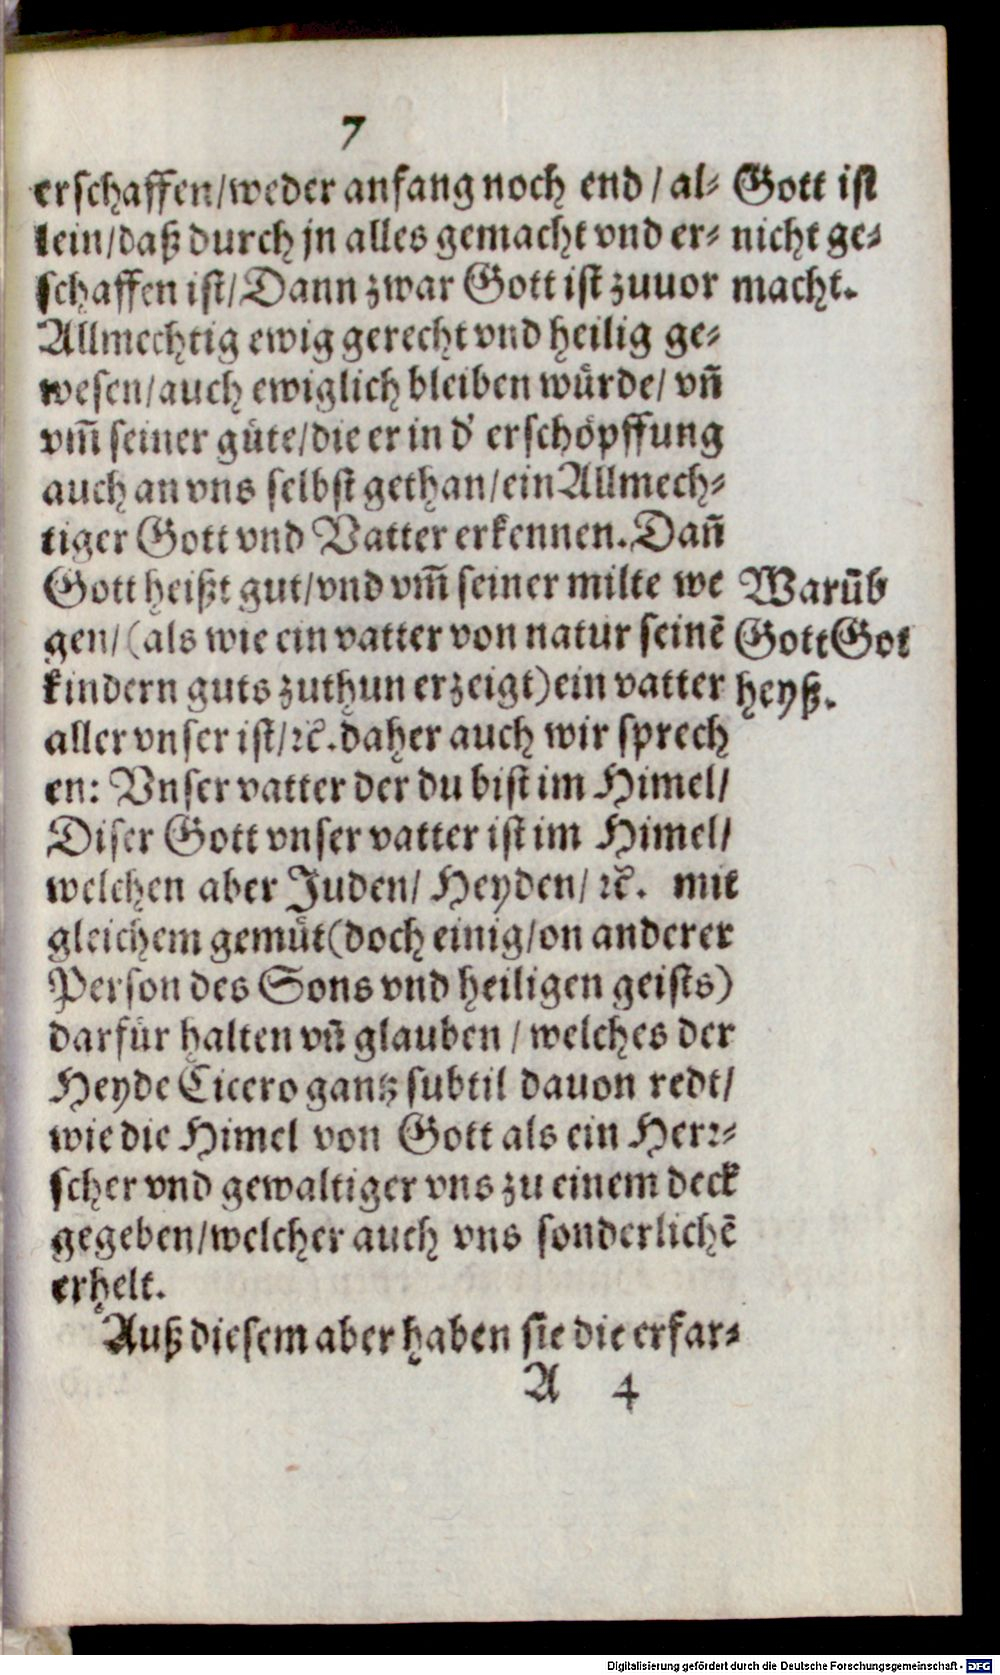 7
erschaffen/weder anfang noch end / al⸗
lein/daß durch jn alles gemacht vnd er⸗
schaffen ist/Dann zwar Gott ist zuuor
Allmechtig ewig gerecht vnd heilig ge⸗
wesen/auch ewiglich bleiben würde/ vñ
vm̃ seiner güte/die er in d' erschöpffung
auch an vns selbst gethan/ein Allmech⸗
tiger Gott vnd Vatter erkennen. Dañ
Gott heißt gut/vnd vm̃ seiner milte we
gen/(als wie ein vatter von natur seinẽ
kindern guts zuthun erzeigt)ein vatter
aller vnser ist/ꝛc̃. daher auch wir sprech
en: Vnser vatter der du bist im Himel/
Diser Gott vnser vatter ist im Himel/
welchen aber Juden/ Heyden/ ꝛc̃. mit
gleichem gemüt(doch einig/on anderer
Person des Sons vnd heiligen geists)
darfür halten vñ glauben / welches der
Heyde Cicero gantz subtil dauon redt/
wie die Himel von Gott als ein Herꝛ⸗
scher vnd gewaltiger vns zu einem deck
gegeben/welcher auch vns sonderlichẽ
erhelt.
Auß diesem aber haben sie die erfar⸗
A 4
Gott ist
nicht ge⸗
macht.
Warũb
Gott Got
heyß.
Digitalisierung gefördert durch die Deutsche Forschungsgemeinschaft - DFG